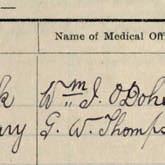 Name of Medical Offi
k Wm. J. O'Dohe
ary G. W. Thomps